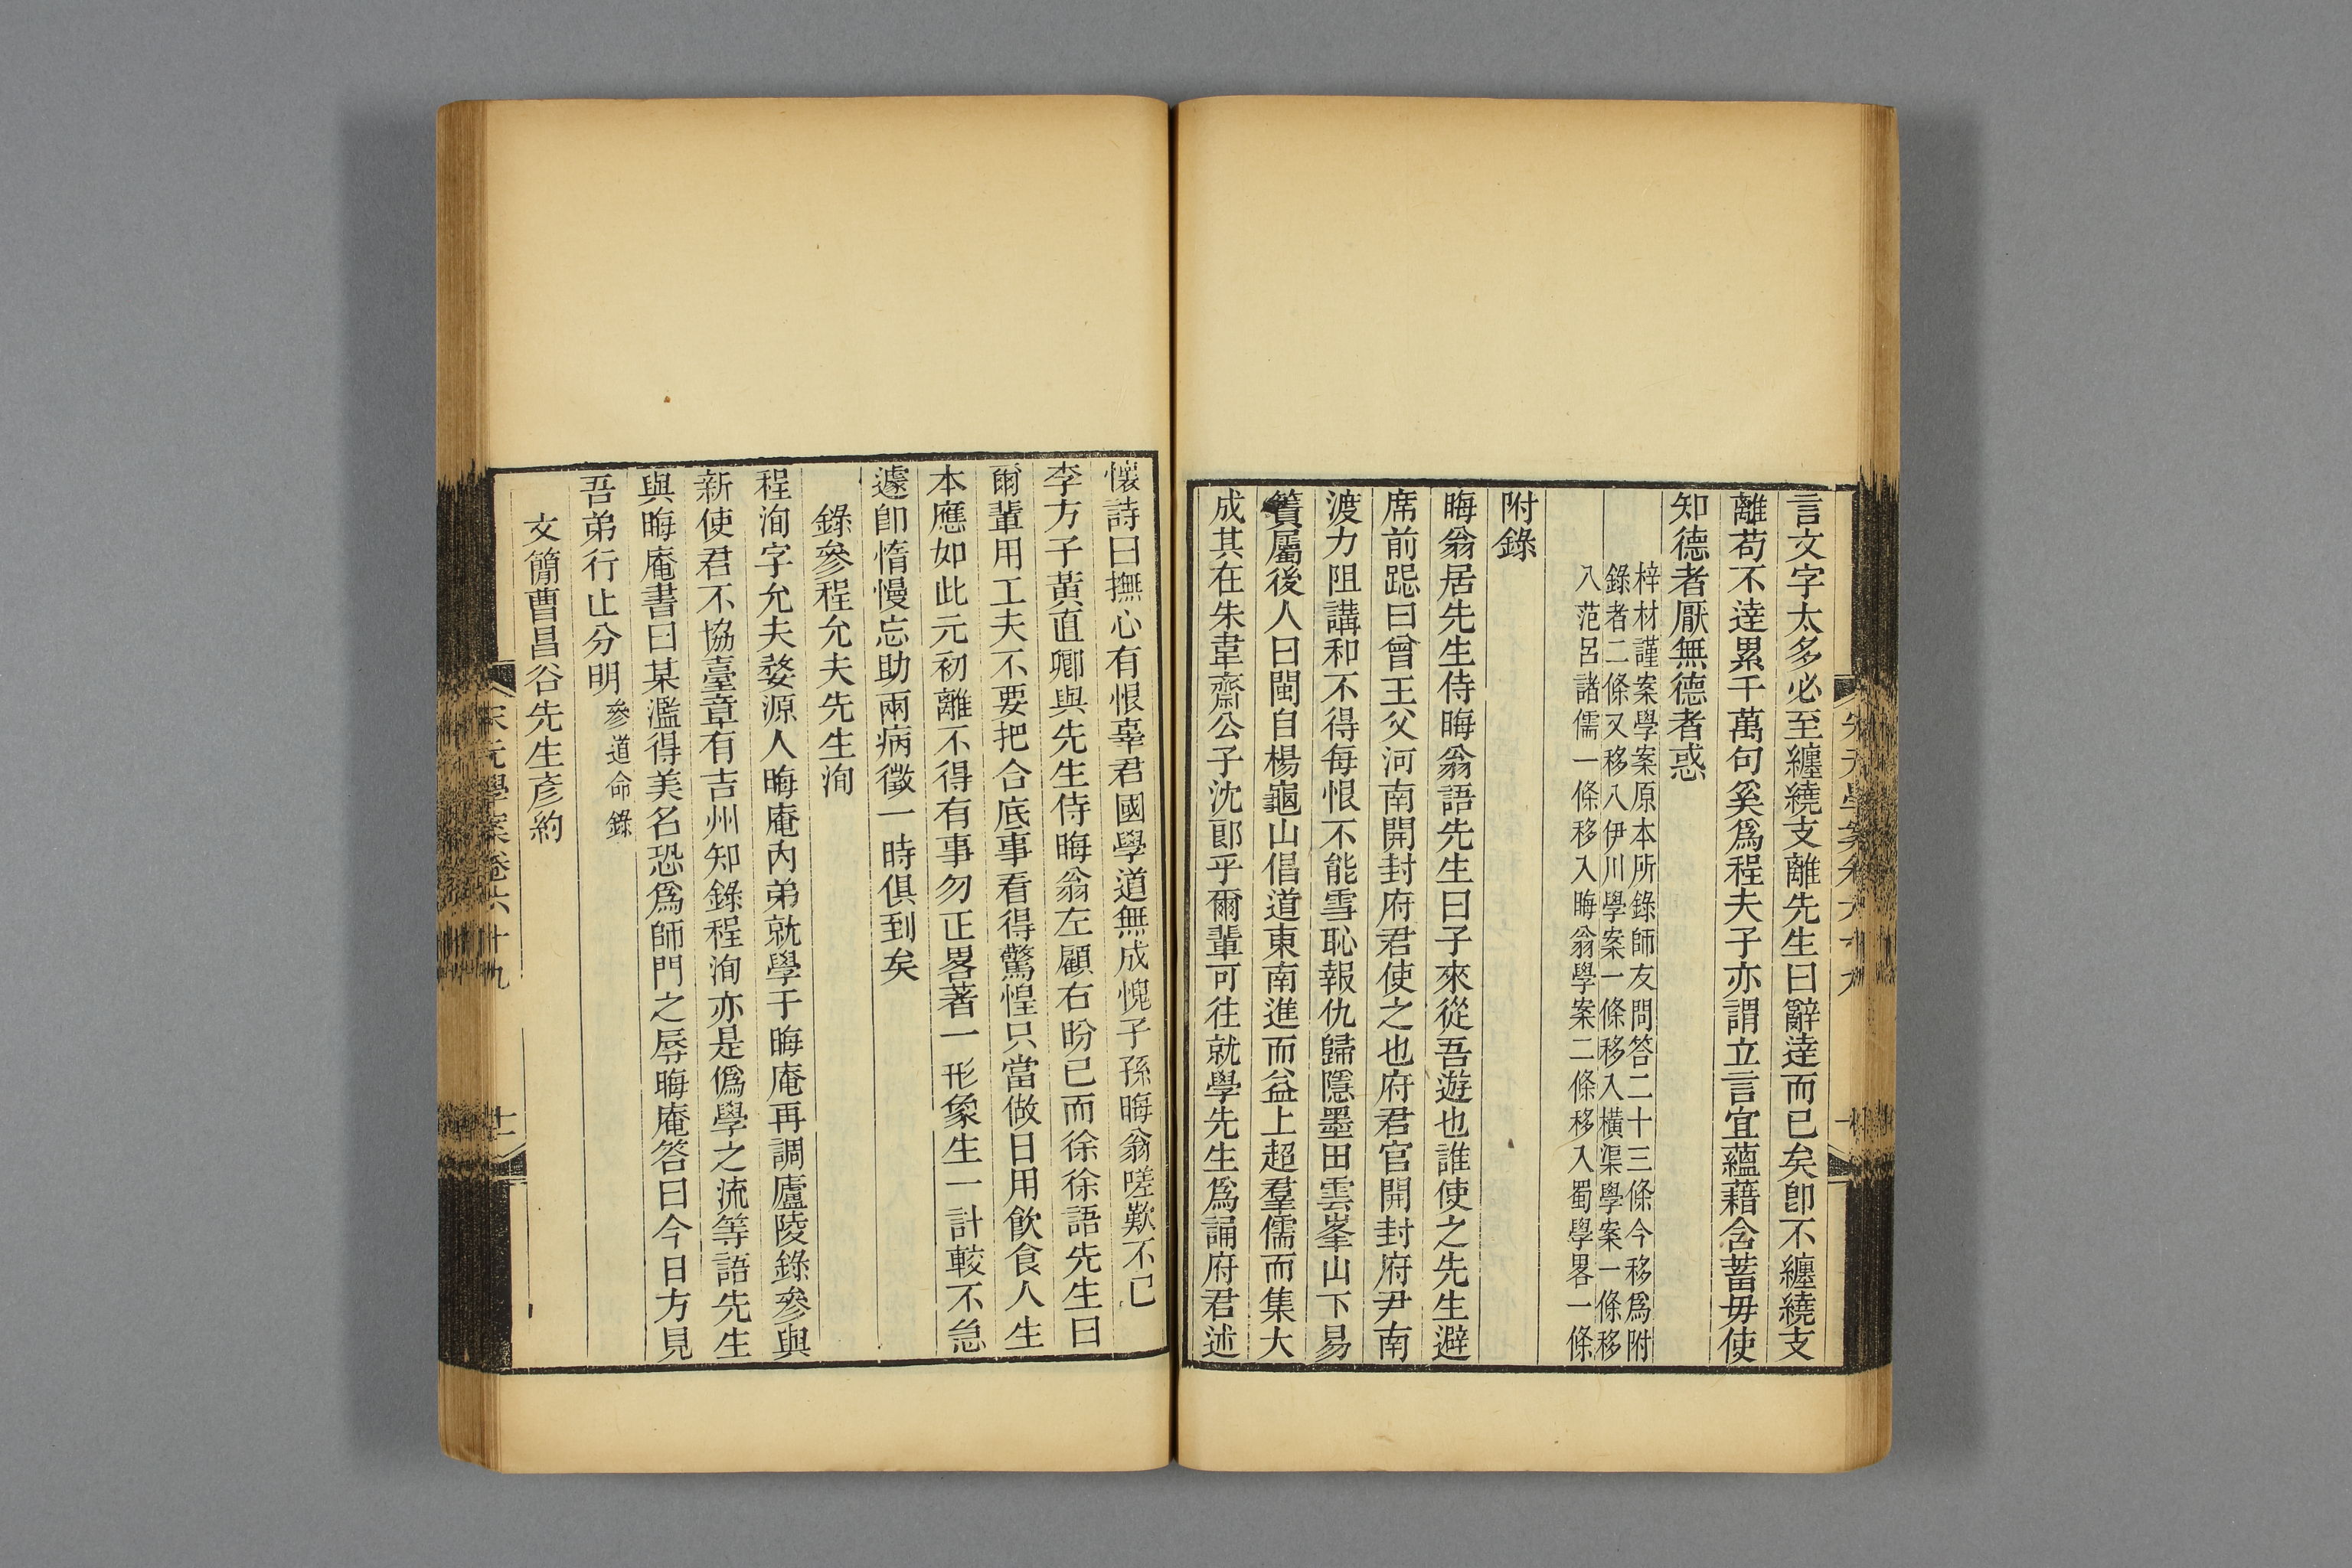 言文字太多必至纏繞支離先生曰辭達而已矣卽不纏繞支
離苟不達累千萬句奚爲程夫子亦謂立言宜蘊藉含蓄毋使
知德者厭無德者惑
梓材謹案學案原本所錄師友問答二十三條今移爲附
錄者二條又移入伊川學案一條移入橫渠學案一條移
入范呂諸儒一條移入晦翁學案二條移入蜀學畧一條
附錄
晦翁居先生侍晦翁語先生曰子來從吾遊也誰使之先生避
席前跽曰曾王父河南開封府君使之也府君官開封府尹南
渡力阻講和不得每恨不能雪恥報仇歸隱墨田雲峯山下易
簀屬後人曰閩自楊龜山倡道東南進而益上超羣儒而集大
成其在朱韋齋公子沈郞乎爾輩可往就學先生爲誦府君述
懷詩曰撫心有恨辜君國學道無成愧子孫晦翁嗟歎不已
李方子黃直卿與先生侍晦翁左顧右盼已而徐徐語先生曰
爾輩用工夫不要把合底事看得驚惶只當做日用飲食人生
本應如此元初離不得有事勿正畧著一形象生一計較不急
遽卽惰慢忘助兩病徵一時俱到矣
錄參程允夫先生洵
程洵字允夫婺源人晦庵內弟就學于晦庵再調廬陵錄參與
新使君不協臺章有吉州知錄程洵亦是僞學之流等語先生
與晦庵書曰某濫得美名恐爲師門之辱晦庵答曰今日方見
吾弟行止分明參道命錄
文簡曹昌谷先生彥約
宋元學案卷六十九